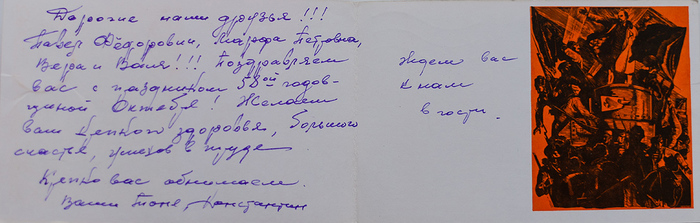 Дорогие наши друзья!!!
Павел Фёдорович, Марфа Петровна,
Вера и Ваня!!! Поздравляем
вас с праздником 58ой годов-
щиной Октября! Желаем
вам крепкого здоровья, большого
счастья, успехов в труде
Крепко вас обнимаем.
Ваши Тоня, Константин
Ждем вас
к нам
в гости.